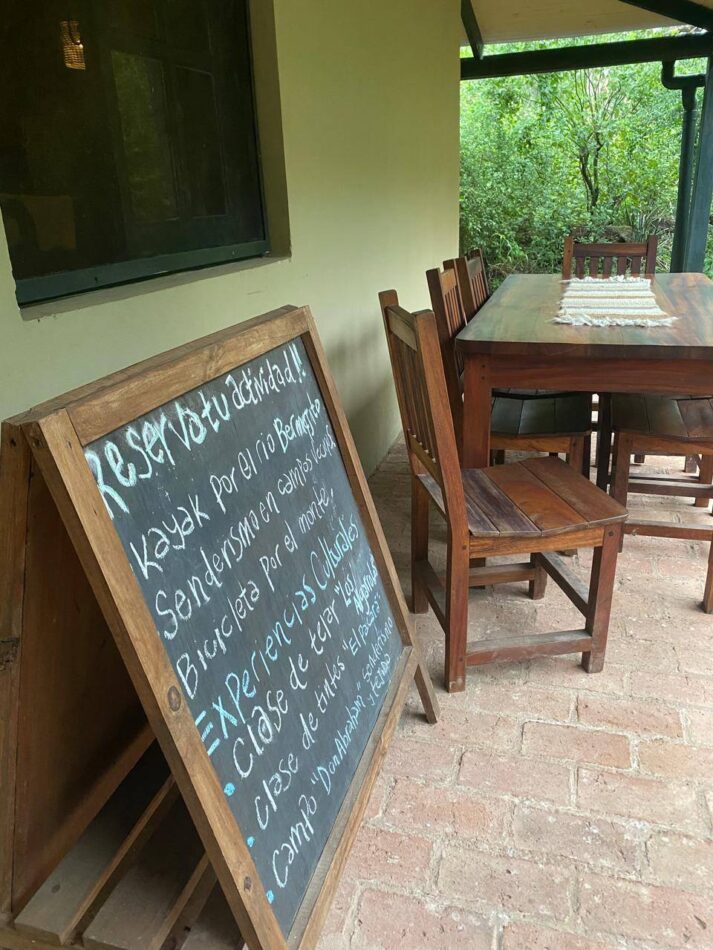 Reserva tu actividad!!
Kayak por el río Bermejito
Senderismo en campos vecinos
Bicicleta por el monte.
Experiencias Culturales
• Clase de telar "Los Algarrobos"
• Clase de tintes "El Palmar"
• Campo "Don Abraham" Senderismo y tejido